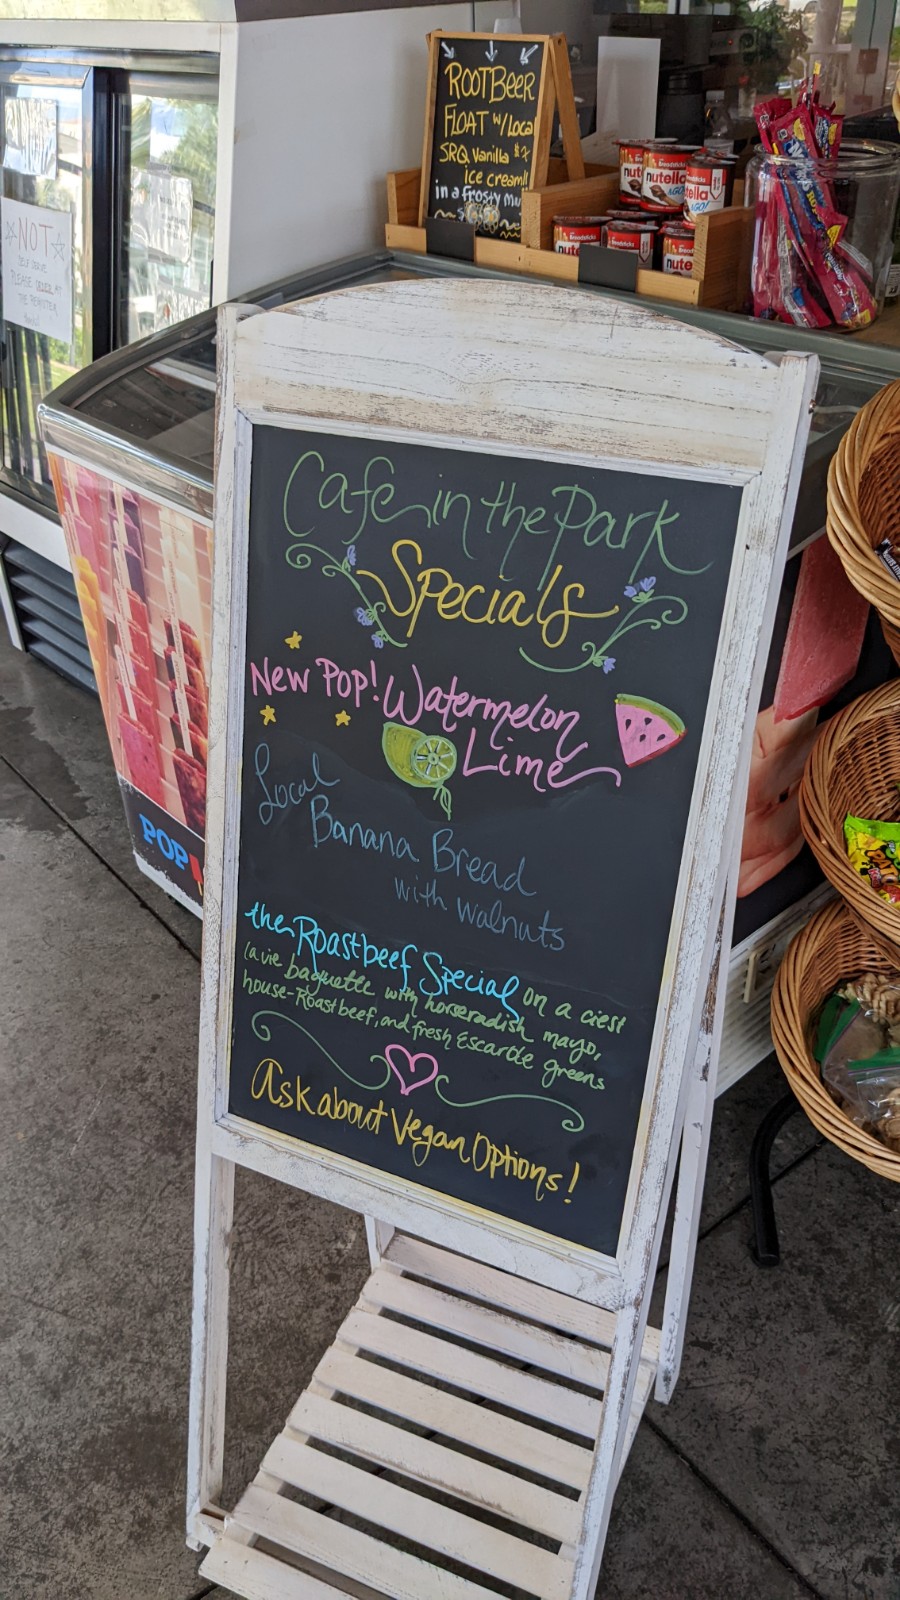 ROOTBEER
FLOAT w/ Local
SRQ Vanilla $7
ice cream!!
in a frosty mu
NOT
SELF SERVE
PLEASE ORDER AT
THE REGISTER
nutella
nutella
&GO!
Breadsticks
nutella
&GO!
Breadsticks
Breadsticks
nute
Cafe in the Park
Specials
New Pop! Watermelon
Lime
Local
Banana Bread
with walnuts
the Roastbeef Special on a ciest
la vie baguette with horseradish mayo,
house-Roastbeef, and fresh Escarole greens
Ask about Vegan Options!
POP